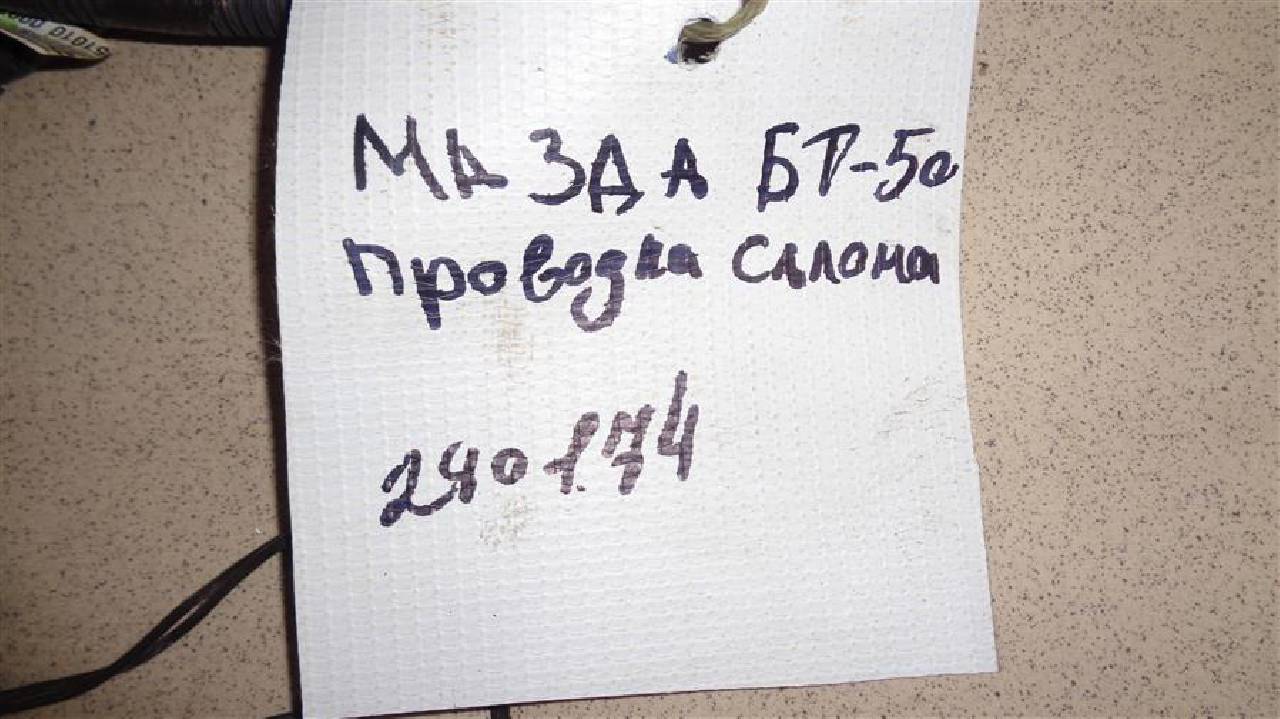 МАЗДА БТ-50
проводка салона
240174